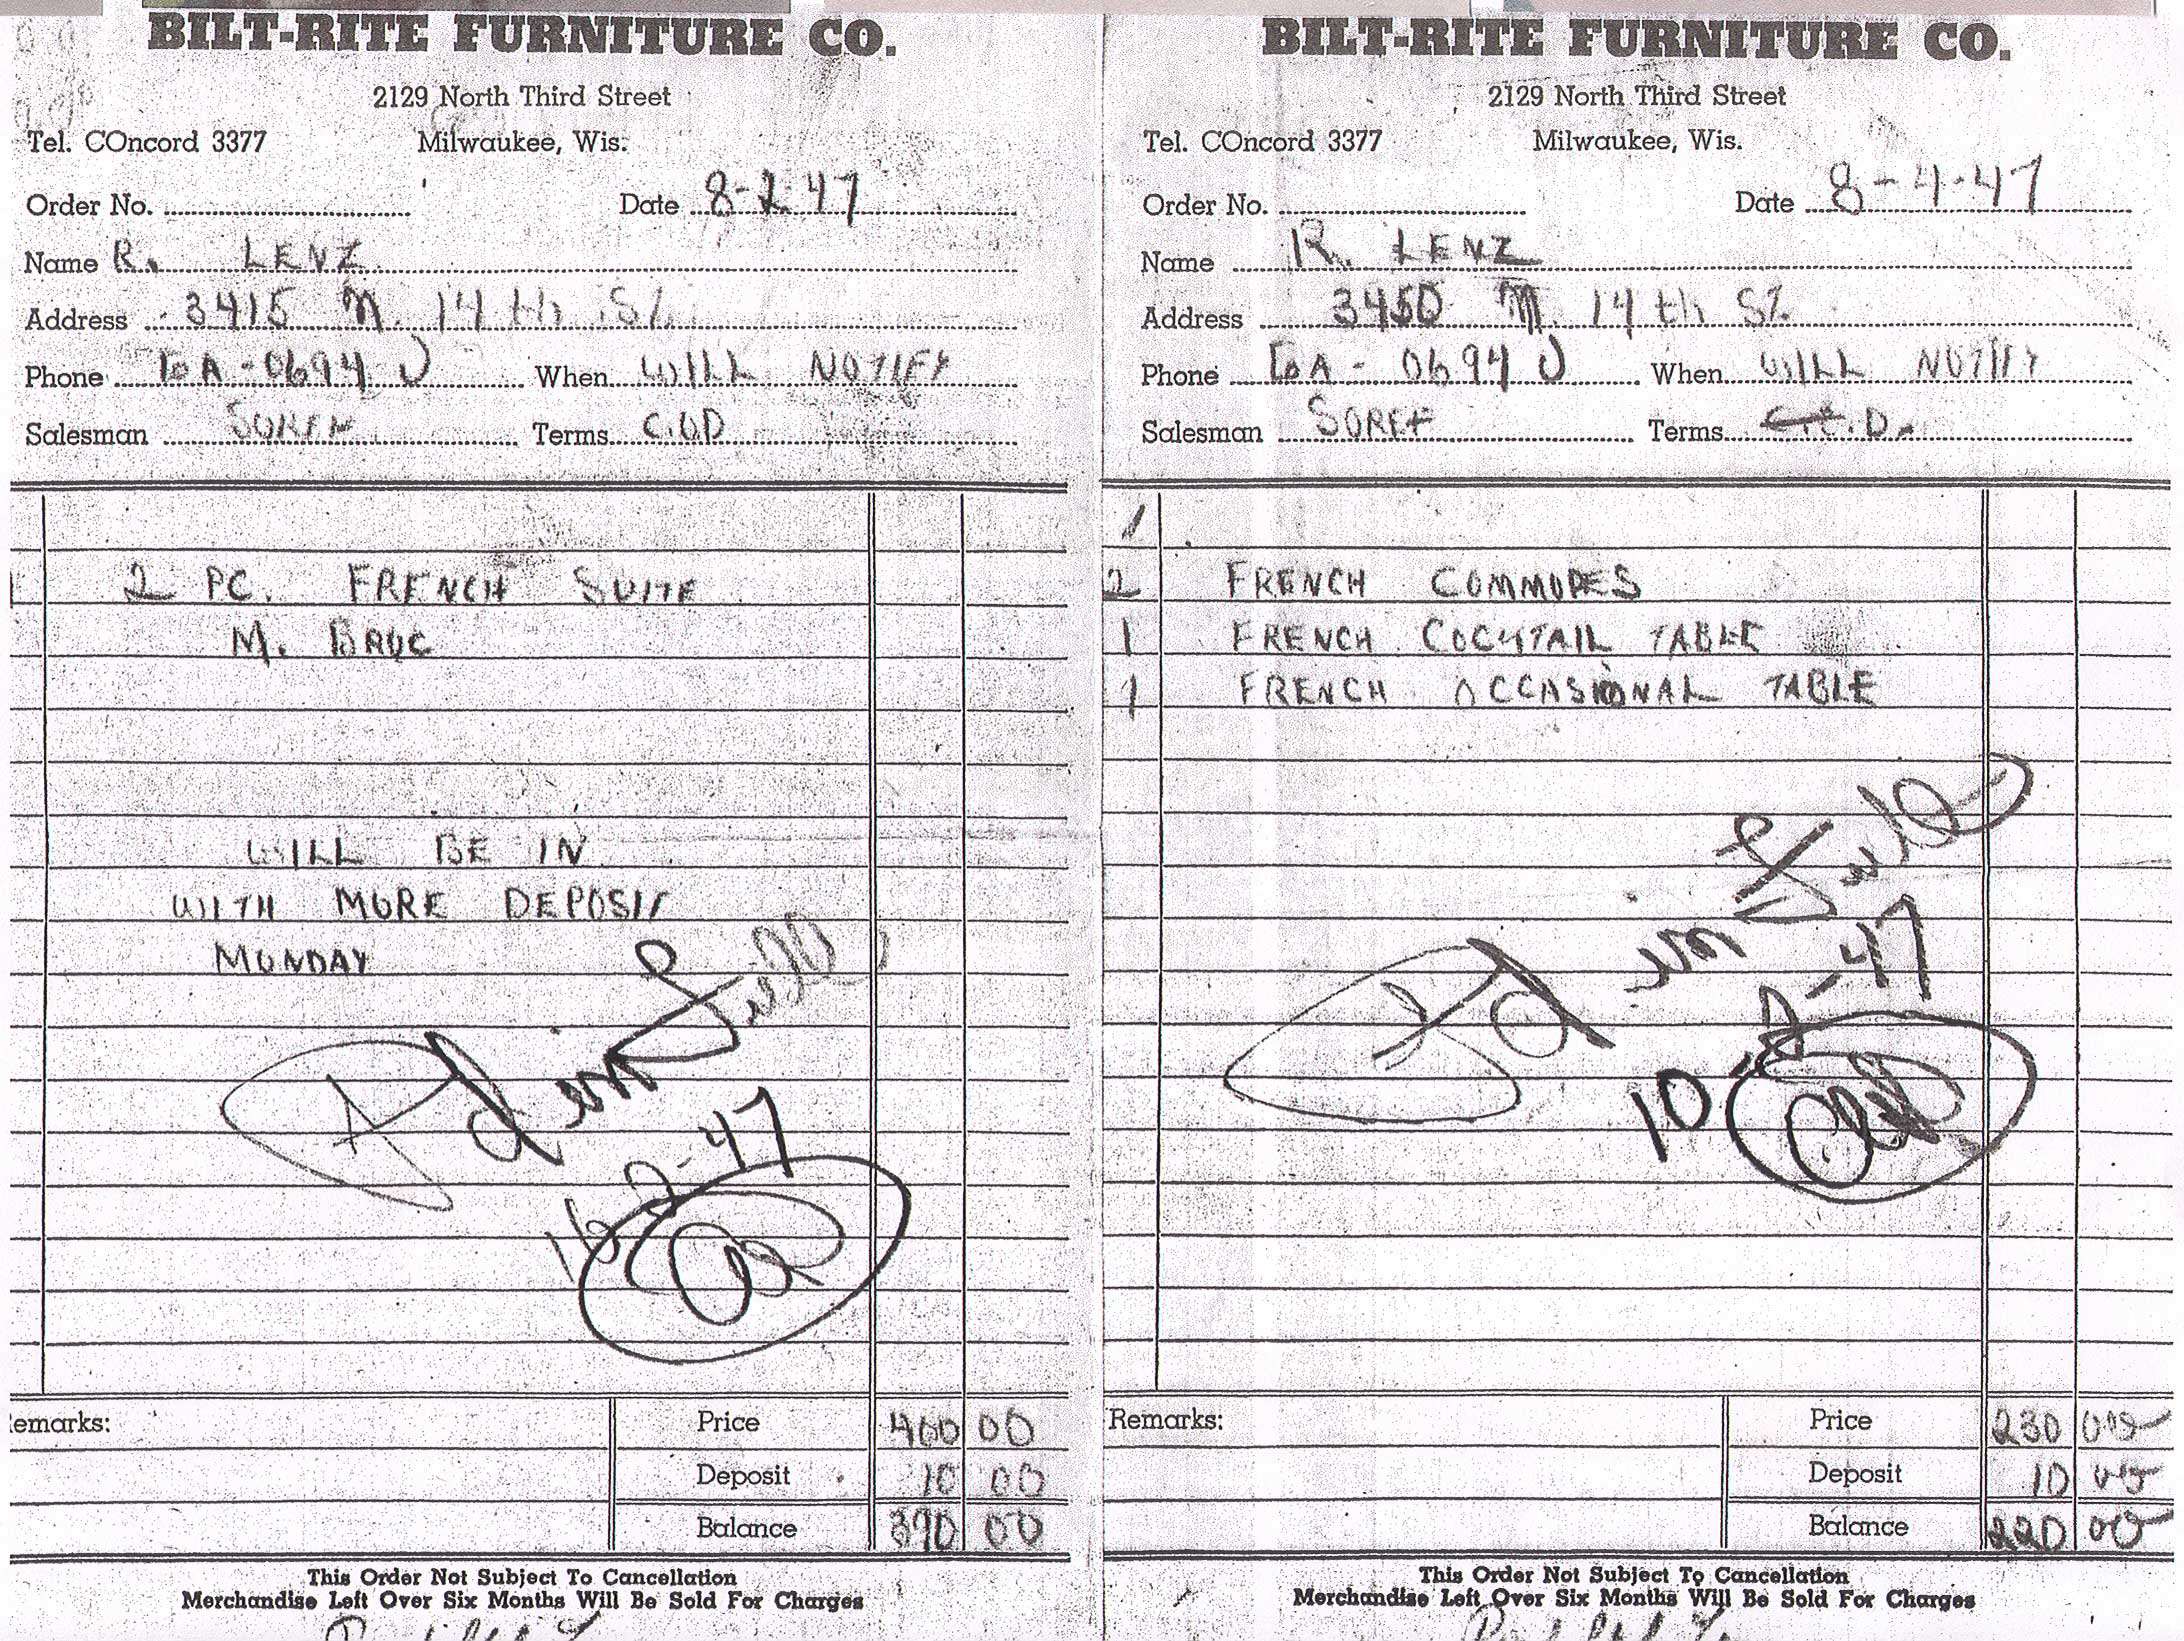 BILT-RITE FURNITURE CO.
2129 North Third Street
Tel. COncord 3377 Milwaukee, Wis.
Order No. Date 8-2-47
Name R. LENZ
Address 3415 N. 14 th St.
Phone When WILL NOTIFY
Salesman SOREF Terms C.O.D
1 2 PC. FRENCH SUITE
M.
WILL BE IN
WITH MORE DEPOSIT
MONDAY
Pd in Full
10-2-47
emarks: Price 400 00
Deposit 10 00
Balance 390 00
This Order Not Subject To Cancellation
Merchandise Left Over Six Months Will Be Sold For Charges
BILT-RITE FURNITURE CO.
2129 North Third Street
Tel. COncord 3377 Milwaukee, Wis.
Order No. Date 8-4-47
Name R. LENZ
Address 3450 N. 14 th St
Phone When WILL NOTIFY
Salesman SOREF Terms
2 FRENCH COMMODES
1 FRENCH COCKTAIL TABLE
1 FRENCH OCCASIONAL TABLE
Pd in Full
10-2-47
Remarks: Price 230 00
Deposit 10 00
Balance 220 00
This Order Not Subject To Cancellation
Merchandise Left Over Six Months Will Be Sold For Charges